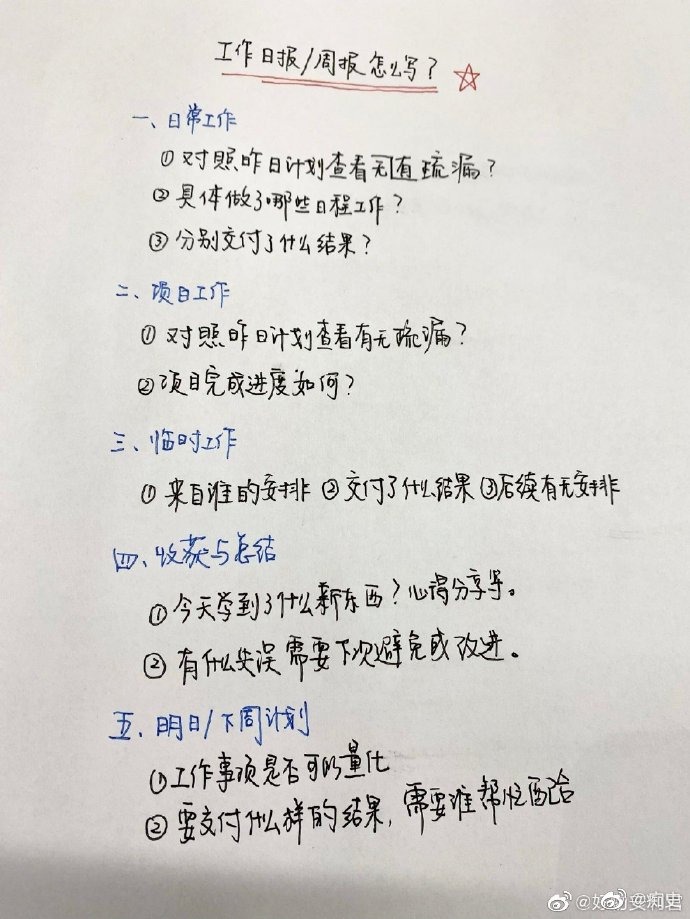 工作日报/周报怎么写?
一、日常工作
①对照昨日计划查看无有疏漏?
②具体做了哪些日程工作?
③分别交付了什么结果?
二、项目工作
①对照昨日计划查看有无疏漏?
②项目完成进度如何?
三、临时工作
①来自谁的安排 ②交付了什么结果 ③后续有无安排
四、收获与总结
①今天学到了什么新东西?心得分享等。
②有什么失误需要下次避免或改进。
五、明日/下周计划
①工作事项是否可以量化
②要交付什么样的结果,需要谁帮忙配合